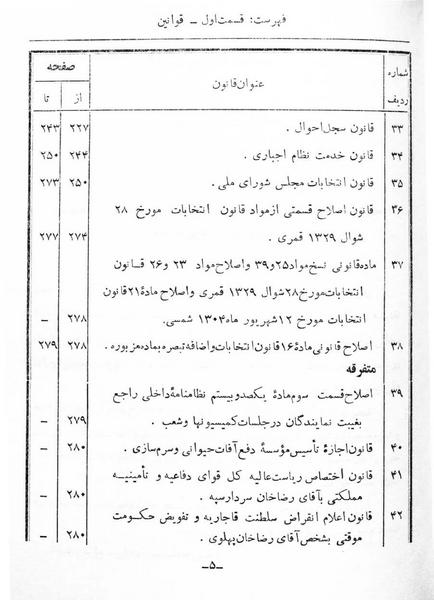 فهرست: قسمت اول ـ قوانین
شماره ردیف	عنوان قانون	صفحه
از	تا
۳۳	قانون سجل احوال .	۲۲۷	۲۴۳
۳۴	قانون خدمت نظام اجباری .	۲۴۴	۲۵۰
۳۵	قانون انتخابات مجلس شورای ملی .	۲۵۰	۲۷۳
۳۶	قانون اصلاح قسمتی از مواد قانون انتخابات مورخ ۲۸
شوال ۱۳۲۹ قمری .	۲۷۴	۲۷۷
۳۷	ماده قانونی نسخ مواد ۲۵ و ۳۹ و اصلاح مواد ۲۳ و ۲۶ قانون
انتخابات مورخ ۲۸ شوال ۱۳۲۹ قمری و اصلاح مادهٔ ۲۱ قانون
انتخابات مورخ ۱۲ شهریور ماه ۱۳۰۴ شمسی.	۲۷۸	–
۳۸	اصلاح قانونی مادهٔ ۱۶ قانون انتخابات و اضافه تبصره بماده مزبوره .	۲۷۸	۲۷۹
متفرقه
۳۹	اصلاح قسمت سوم مادهٔ یکصد و بیستم نظامنامهٔ داخلی راجع
بغیبت نمایندگان در جلسات کمیسیونها و شعب .	۲۷۹	–
۴۰	قانون اجازهٔ تأسیس مؤسسهٔ دفع آفات حیوانی و سرم سازی .	۲۸۰	–
۴۱	قانون اختصاص ریاست عالیه کل قوای دفاعیه و تأمینیه
مملکتی بآقای رضاخان سردار سپه .	۲۸۰	–
۴۲	قانون اعلام انقراض سلطنت قاجاریه و تفویض حکومت
موقتی بشخص آقای رضاخان پهلوی .	۲۸۰	–
–۵–